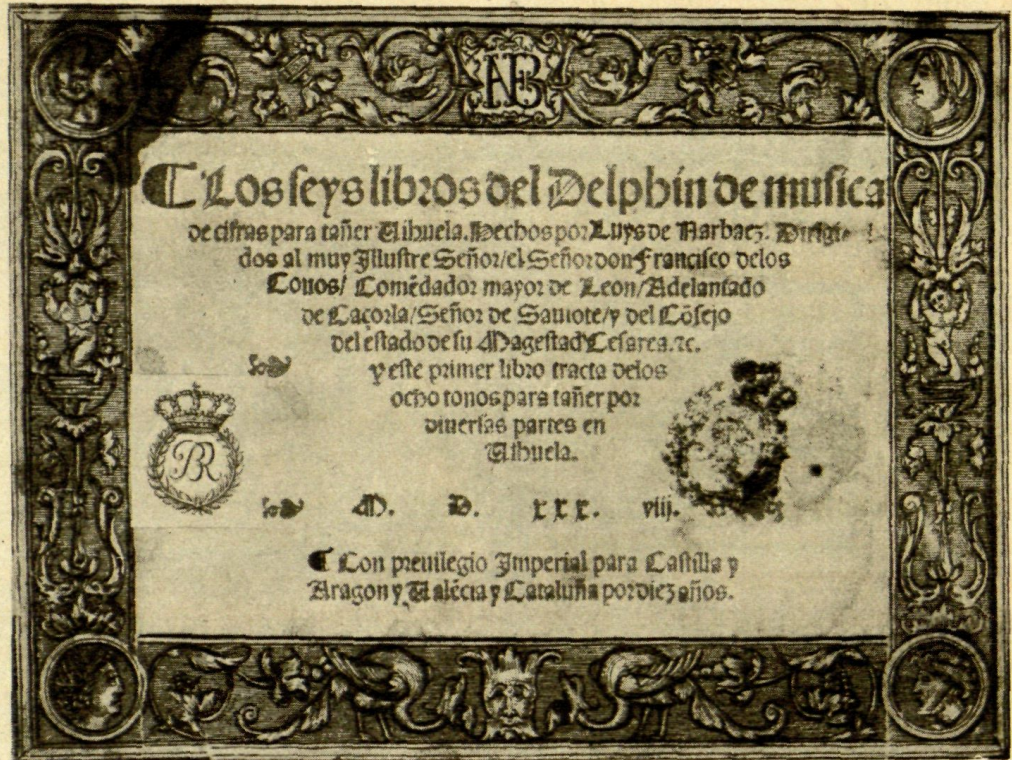 ¶ Los seys libros del Delphin de musica
de cifras para tañer Uihuela. Hechos por Luys de Narbaez. Dirigi-
dos al muy Illustre Señor/el Señor don Francisco delos
Couos/ Comēdador mayor de Leon/Adelantado
de Caçorla/Señor de Sauiote/y del Cōsejo
del estado de su Magestad Cesarea.⁊c.
y este primer libro tracta delos
ocho tonos para tañer por
diuersas partes en
Uihuela.
M. D. xxx. viij.
¶ Con preuilegio Imperial para Castilla y
Aragon y Ualēcia y Cataluña por diez años.